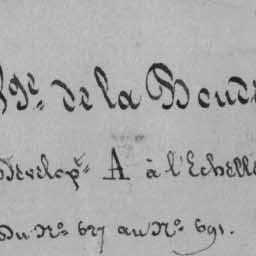 S.on de la Doude
Dévelop.t A à l'Echelle
Du N.o 627 au N.o 691.